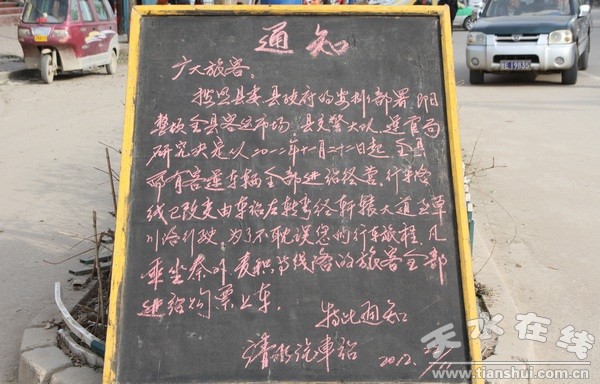 通知
广大旅客:
按照县委、县政府的安排部署,即日
整顿全县客运市场,县交警大队、运管局
研究决定从二〇一二年十一月二十一日起,全县
所有客运车辆全部进站经营,行车路
线已改变由车站左转弯经轩辕大道至草
川路行驶,为了不耽误您的行车旅程,凡
乘坐秦州、麦积等线客的旅客全部
进站购票上车。
特此通知
清水汽车站 2012.
天水在线
www.tianshui.com.cn